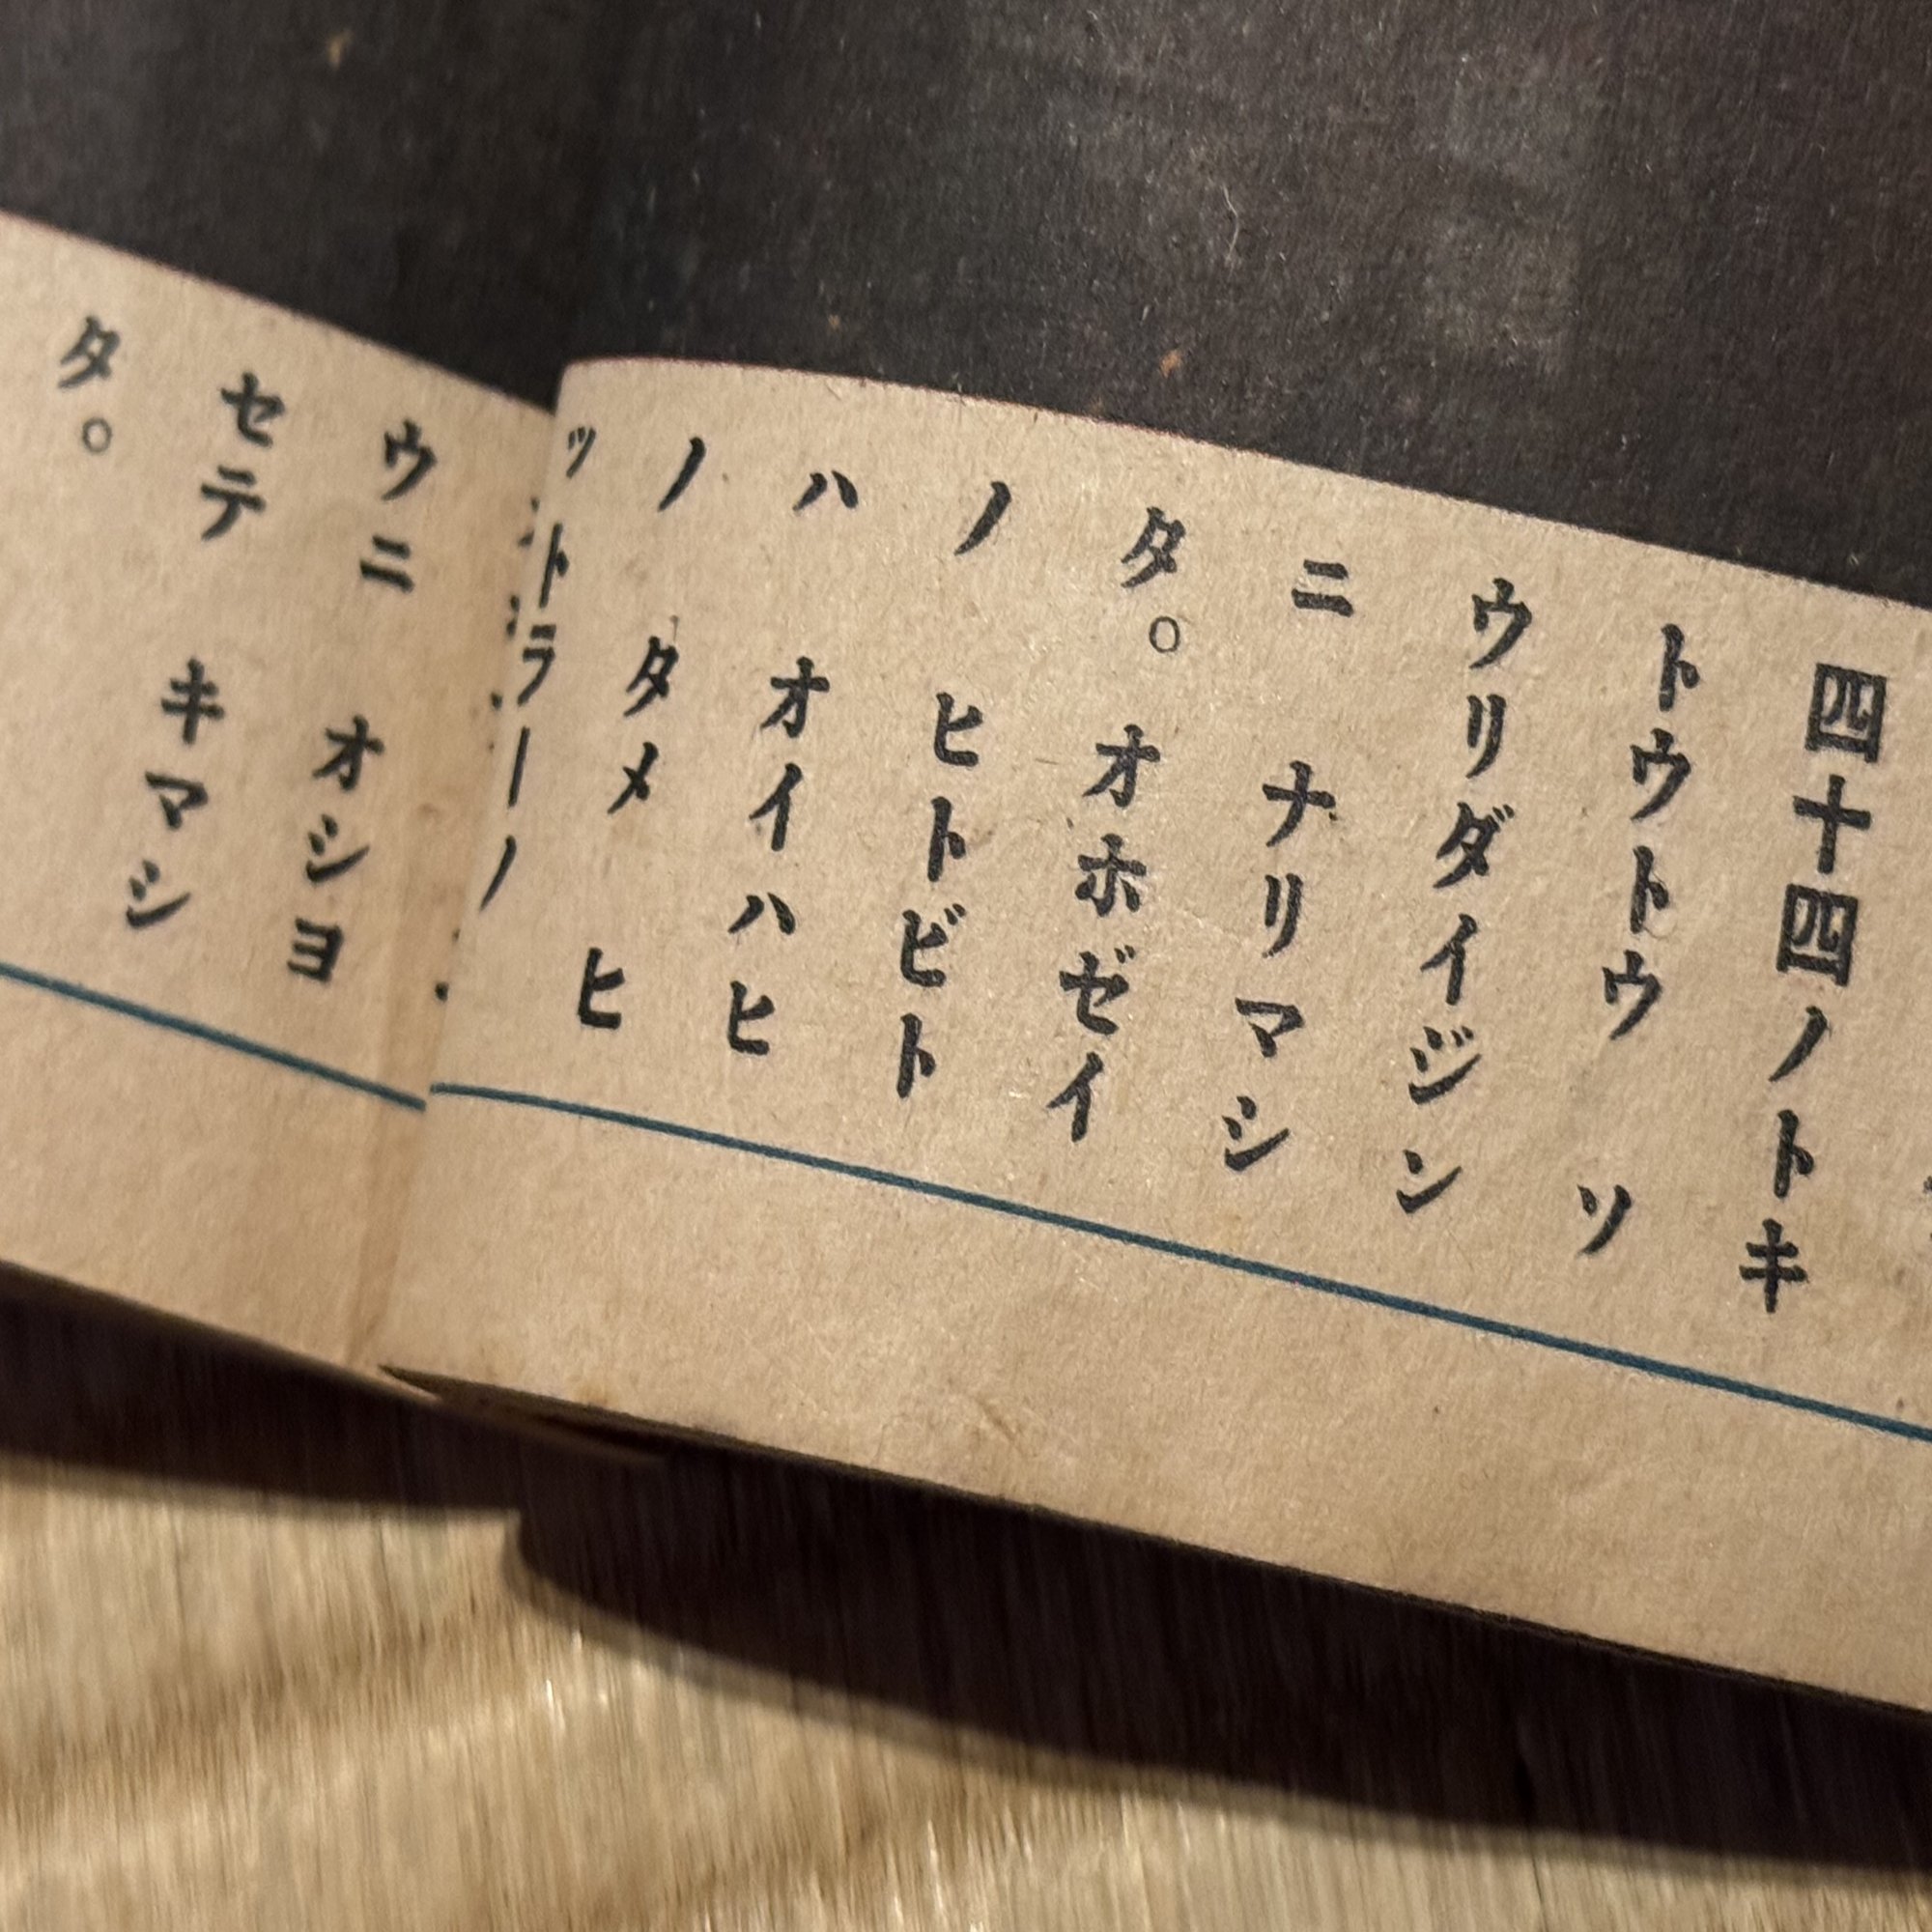 四十四ノトキ
トウトウ ソ
ウリダイジン
ニ ナリマシ
タ。オホゼイ
ノ ヒトビト
ハ オイハヒ
ノ タメ ヒ
ットラーノ
ウニ オシヨ
セテ キマシ
タ。